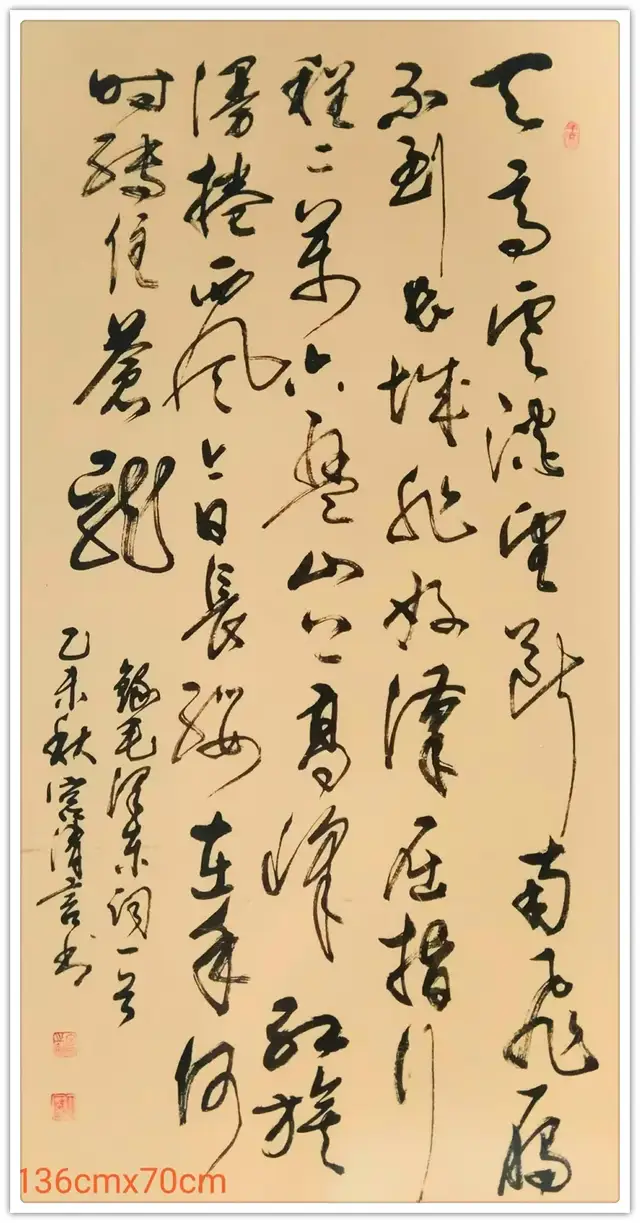 天高雲淡望斷南飛雁
不到長城非好漢屈指行
程二萬六盤山上高峰紅旗
漫捲西風今日長纓在手何
时縛住蒼龍
錄毛澤東詞一首
乙未秋清言书
136cmx70cm